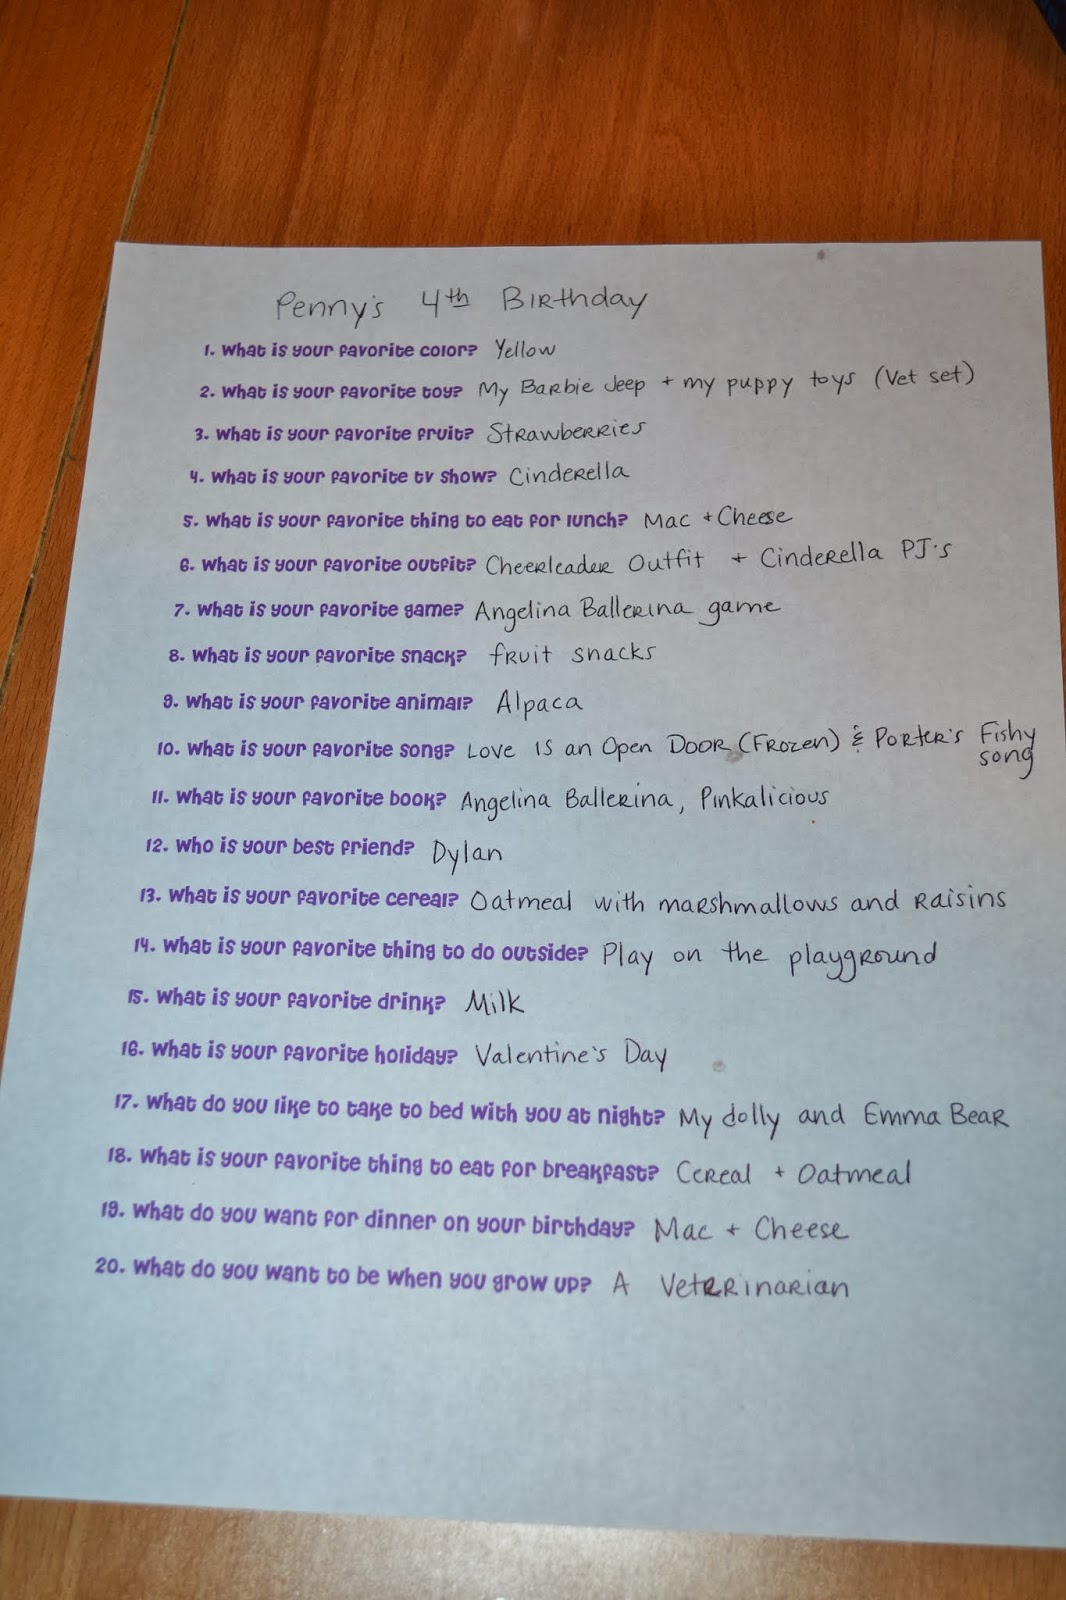 Penny's 4th Birthday
1. What is your favorite color? Yellow
2. What is your favorite toy? My Barbie Jeep + my puppy toys (Vet set)
3. What is your favorite fruit? Strawberries
4. What is your favorite tv show? Cinderella
5. What is your favorite thing to eat for lunch? Mac + Cheese
6. What is your favorite outfit? Cheerleader Outfit + Cinderella PJ's
7. What is your favorite game? Angelina Ballerina game
8. What is your favorite snack? fruit snacks
9. What is your favorite animal? Alpaca
10. What is your favorite song? Love is an Open Door (Frozen) & Porter's Fishy
song
11. What is your favorite book? Angelina Ballerina, Pinkalicious
12. Who is your best friend? Dylan
13. What is your favorite cereal? Oatmeal with marshmallows and raisins
14. What is your favorite thing to do outside? Play on the playground
15. What is your favorite drink? Milk
16. What is your favorite holiday? Valentine's Day
17. What do you like to take to bed with you at night? My dolly and Emma Bear
18. What is your favorite thing to eat for breakfast? Cereal + Oatmeal
19. What do you want for dinner on your birthday? Mac + Cheese
20. What do you want to be when you grow up? A Veterinarian